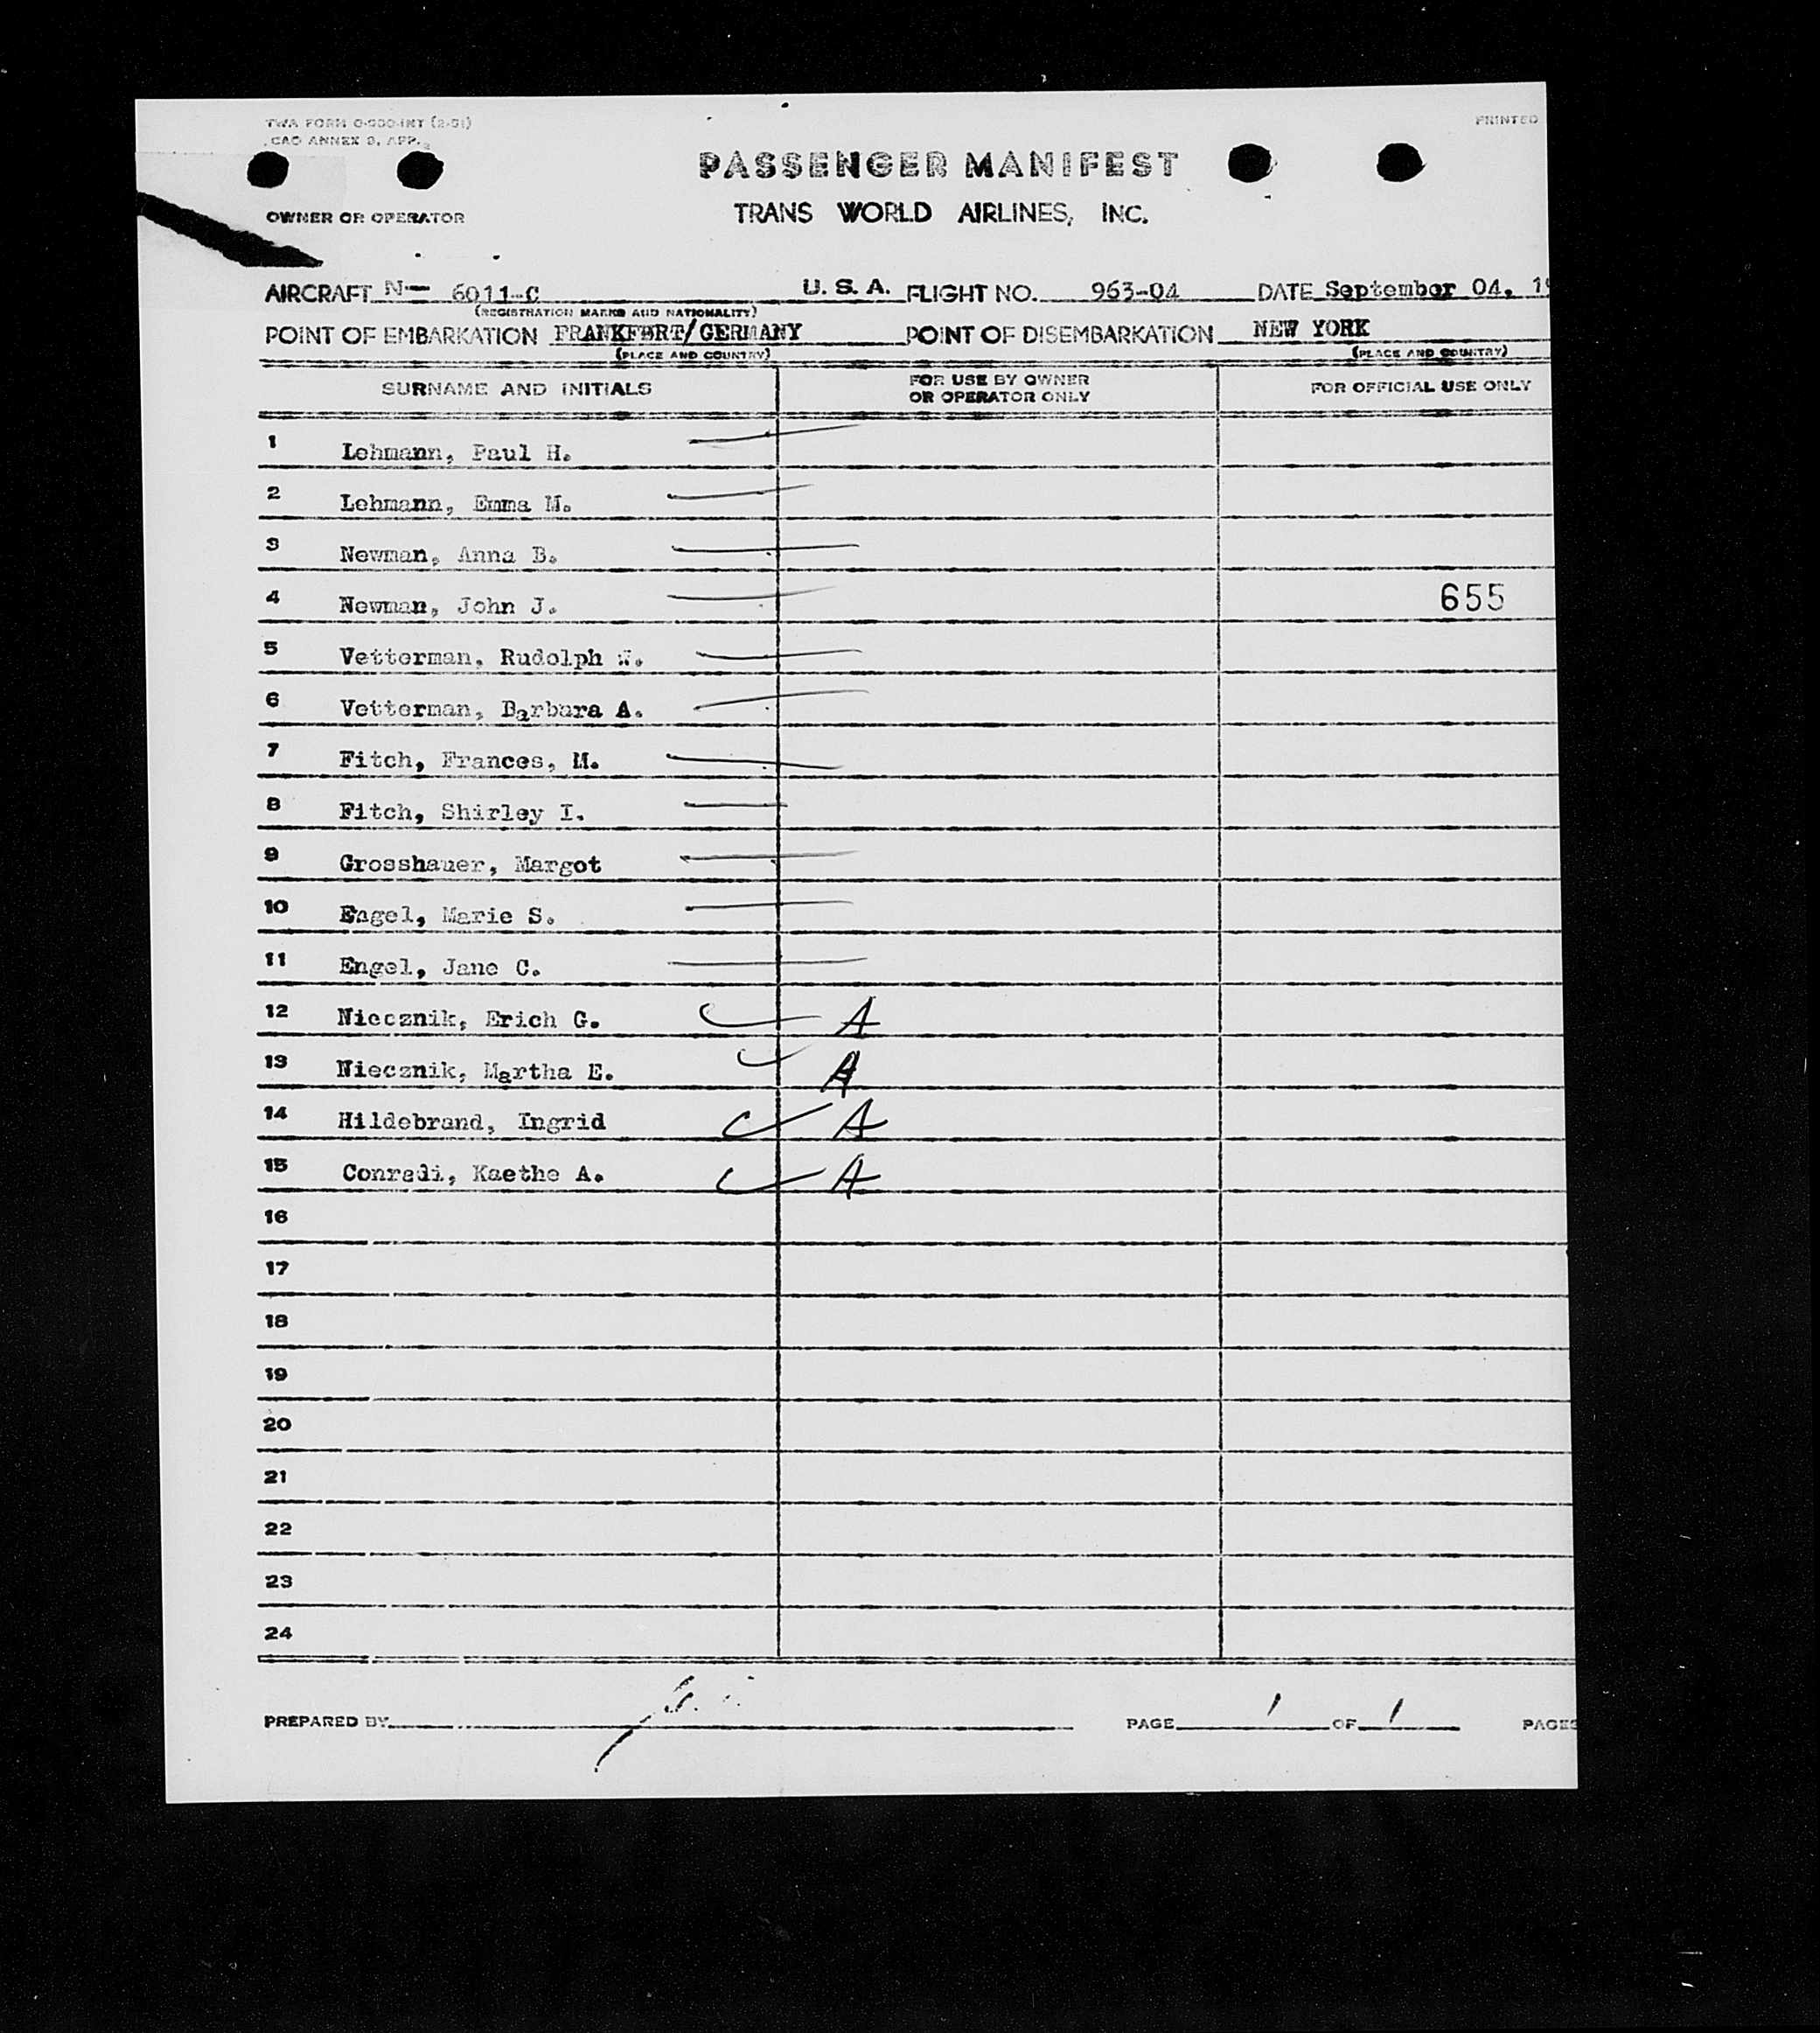 TWA FORM O-900-INT (2-51)
ICAO ANNEX 9, APP. 2
PRINTED
PASSENGER MANIFEST
OWNER OR OPERATOR
TRANS WORLD AIRLINES, INC.
AIRCRAFT N- 6011-C U. S. A. FLIGHT NO. 963-04 DATE September 04, 19
(REGISTRATION MARKS AND NATIONALITY)
POINT OF EMBARKATION FRANKFURT/GERMANY POINT OF DISEMBARKATION NEW YORK
(PLACE AND COUNTRY) (PLACE AND COUNTRY)
SURNAME AND INITIALS FOR USE BY OWNER OR OPERATOR ONLY FOR OFFICIAL USE ONLY
1 Lehmann, Paul H.
2 Lehmann, Emma M.
3 Newman, Anna B.
4 Newman, John J. 655
5 Vetterman, Rudolph W.
6 Vetterman, Barbara A.
7 Fitch, Frances, M.
8 Fitch, Shirley I.
9 Grosshauer, Margot
10 Engel, Marie S.
11 Engel, Jane C.
12 Niecznik, Erich G. A
13 Niecznik, Martha E. A
14 Hildebrand, Ingrid A
15 Conradi, Kaethe A. A
16
17
18
19
20
21
22
23
24
PREPARED BY PAGE 1 OF 1 PAGES